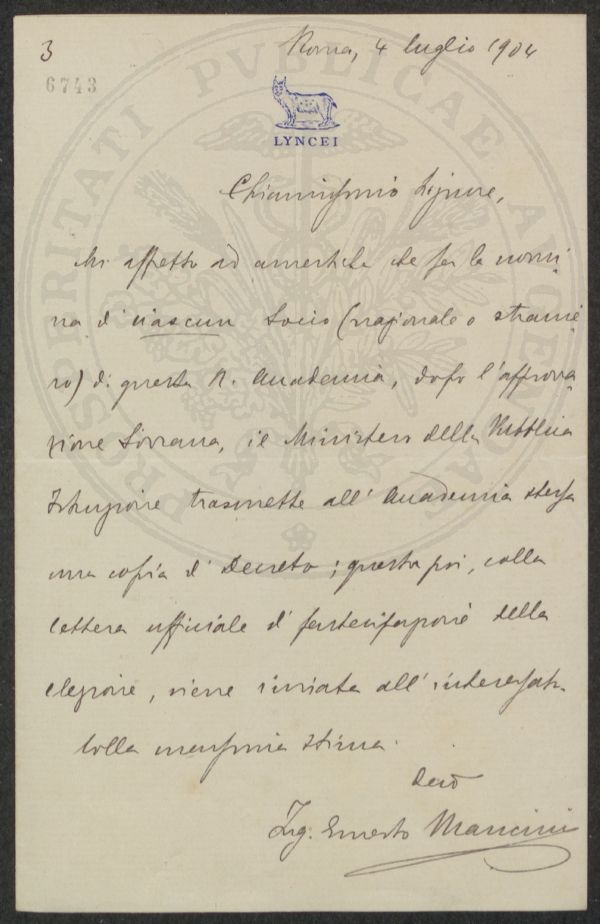 3
Roma, 4 luglio 1904
6743
PROSPERITATI PVBLICAE AVGENDAE
LYNCEI
Chiarissimo Signore,
Mi affretto ad avvertirla che per la nomi-
na di ciascun Socio (nazionale o stranie-
ro) di questa R. Accademia, dopo l'approva-
zione Sovrana, il Ministero della Pubblica
Istruzione trasmette all' Accademia stessa
una copia di Decreto; questa poi, colla
lettera ufficiale di partecipazione della
elezione, viene inviata all' interessato.
Colla massima stima.
Devo
Ing. Ernesto Mancini